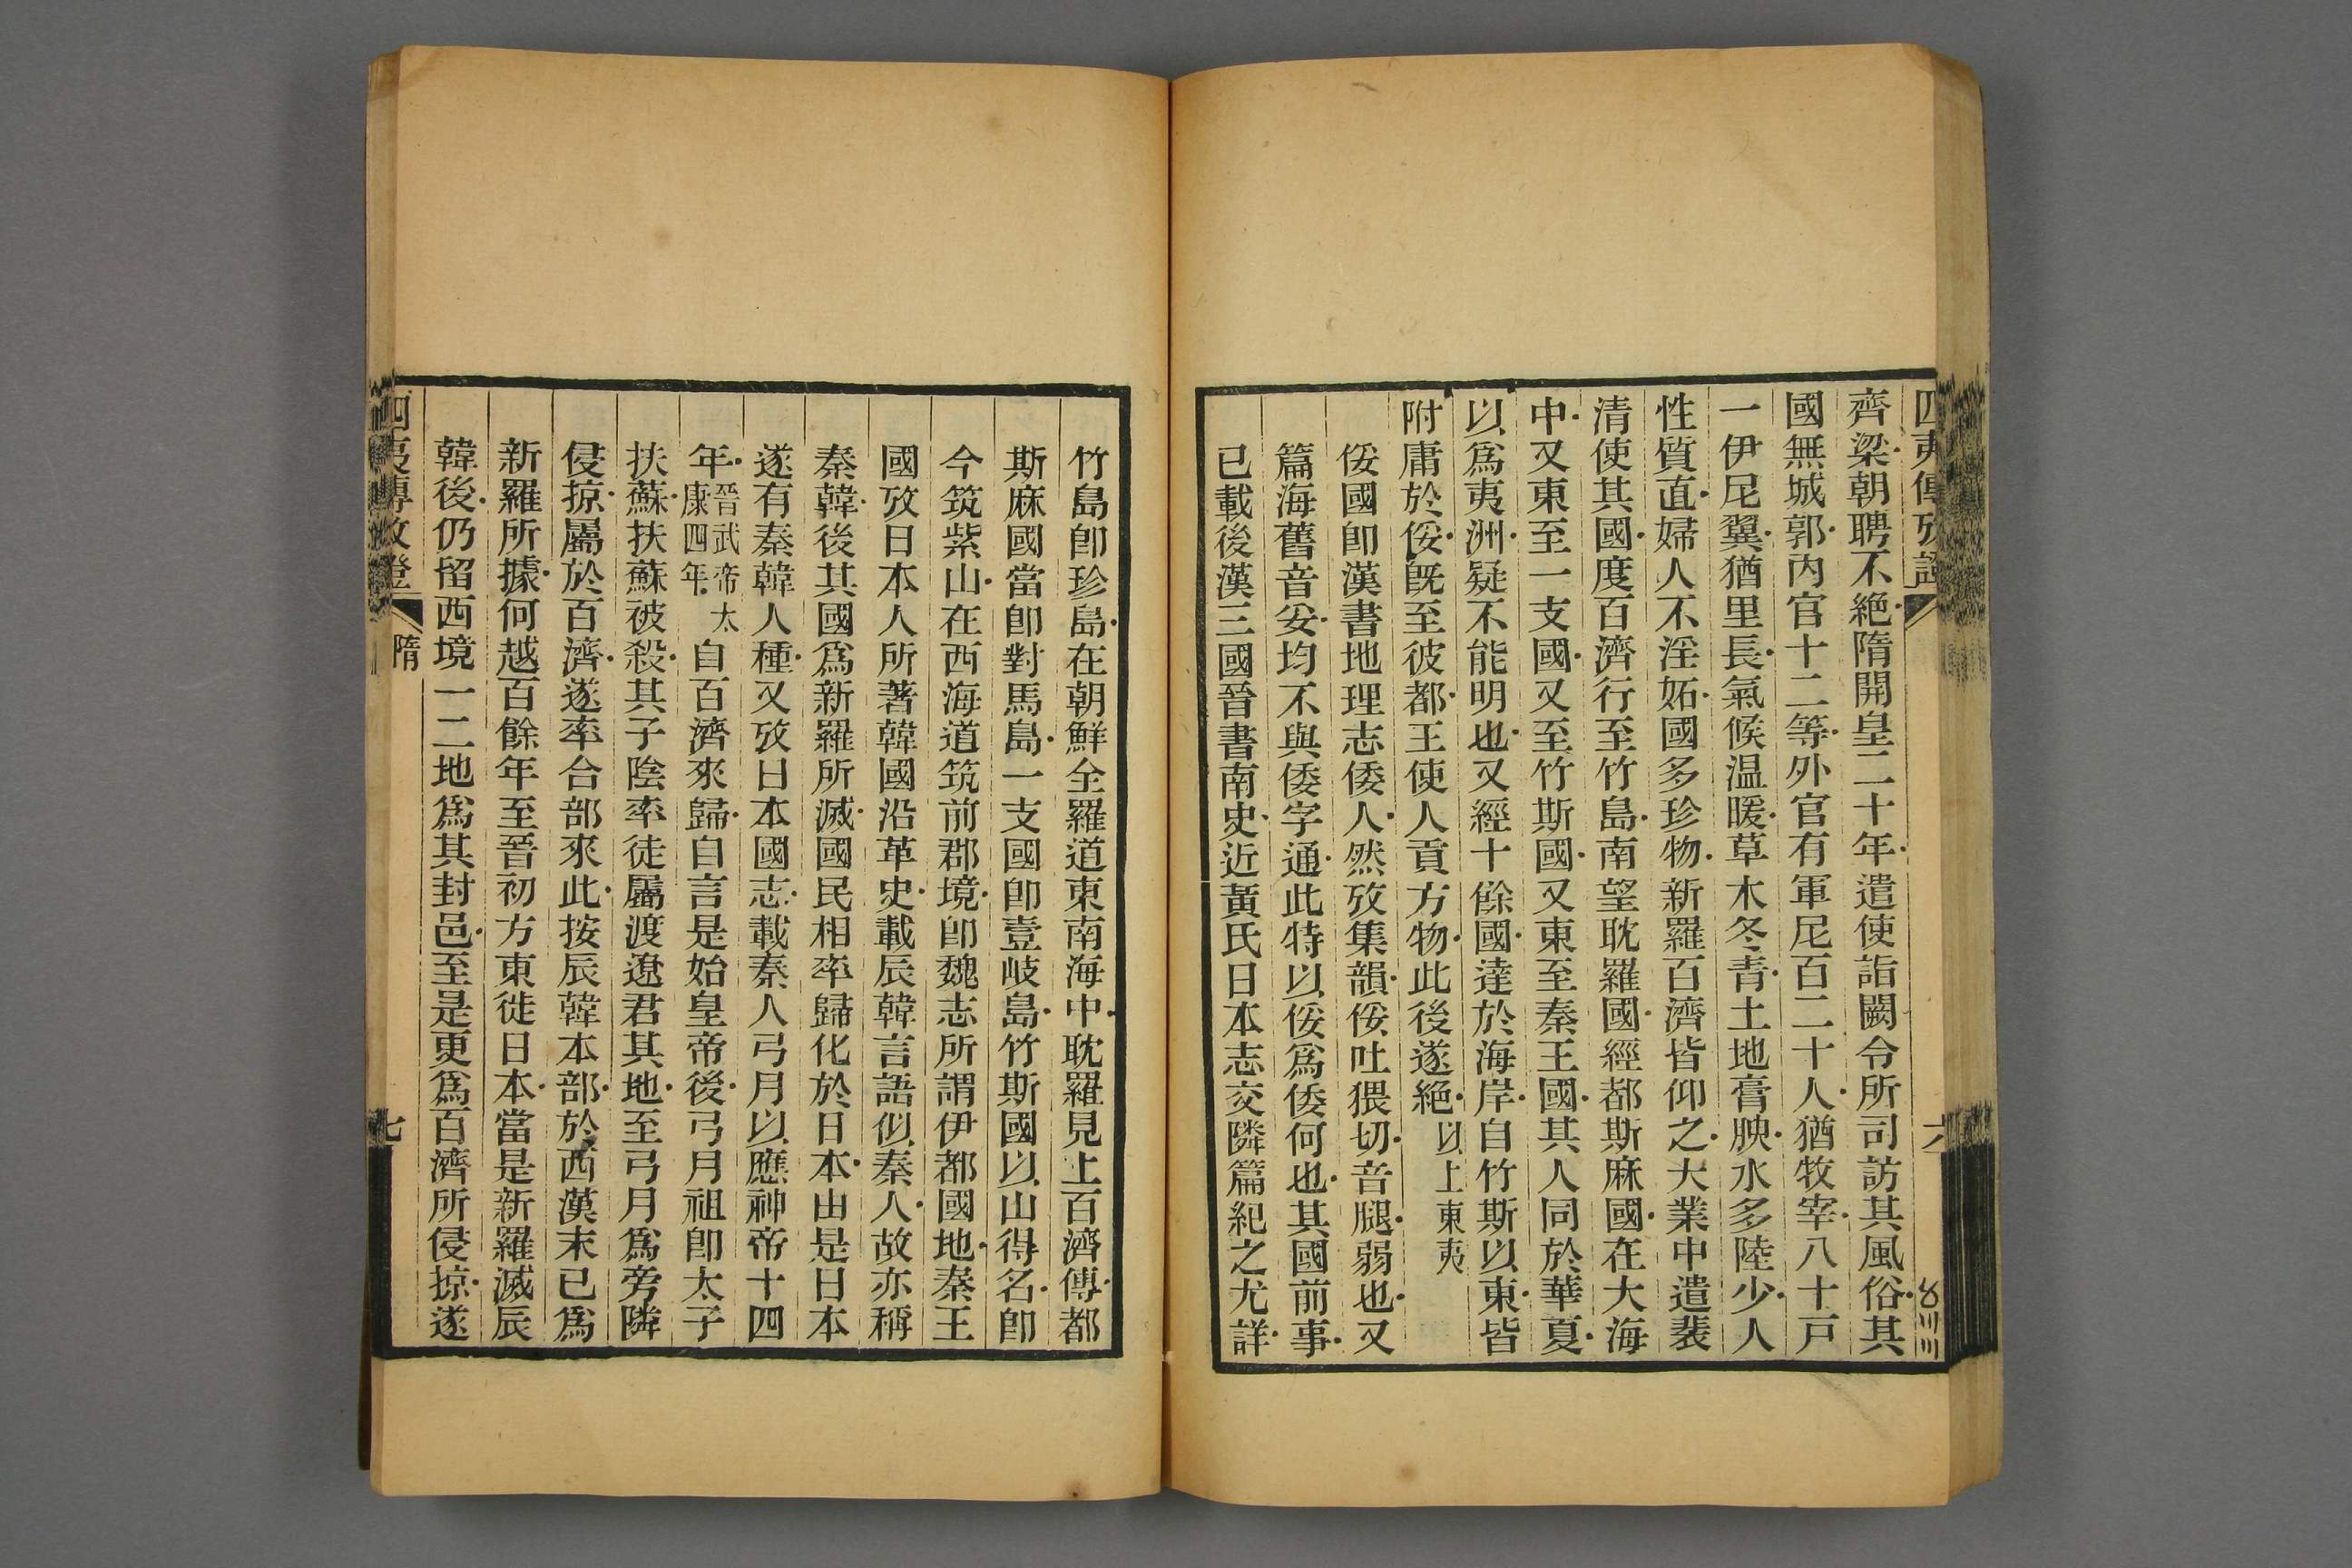 四夷傳攷證
六
齊梁朝聘不絕隋開皇二十年遣使詣闕令所司訪其風俗其
國無城郭內官十二等外官有軍尼百二十人猶牧宰八十戸
一伊尼翼猶里長氣候温暖草木冬青土地膏腴水多陸少人
性質直婦人不淫妬國多珍物新羅百濟皆仰之大業中遣裴
清使其國度百濟行至竹島南望耽羅國經都斯麻國在大海
中又東至一支國又至竹斯國又東至秦王國其人同於華夏
以爲夷洲疑不能明也又經十餘國達於海岸自竹斯以東皆
附庸於俀既至彼都王使人貢方物此後遂絕以上東夷
俀國卽漢書地理志倭人然攷集韻俀吐猥切音腿弱也又
篇海舊音妥均不與倭字通此特以俀爲倭何也其國前事
已載後漢三國晉書南史近黃氏日本志交隣篇紀之尤詳
竹島卽珍島在朝鮮全羅道東南海中耽羅見上百濟傳都
斯麻國當卽對馬島一支國卽壹岐島竹斯國以山得名卽
今筑紫山在西海道筑前郡境卽魏志所謂伊都國地秦王
國攷日本人所著韓國沿革史載辰韓言語似秦人故亦稱
秦韓後其國爲新羅所滅國民相率歸化於日本由是日本
遂有秦韓人種又攷日本國志載秦人弓月以應神帝十四
年晉武帝太康四年自百濟來歸自言是始皇帝後弓月祖卽太子
扶蘇扶蘇被殺其子陰率徒屬渡遼君其地至弓月爲旁隣
侵掠屬於百濟遂率台部來此按辰韓本部於西漢末已爲
新羅所據何越百餘年至晉初方東徙日本當是新羅滅辰
韓後仍留西境一二地爲其封邑至是更爲百濟所侵掠遂
四夷傳攷證
隋
七